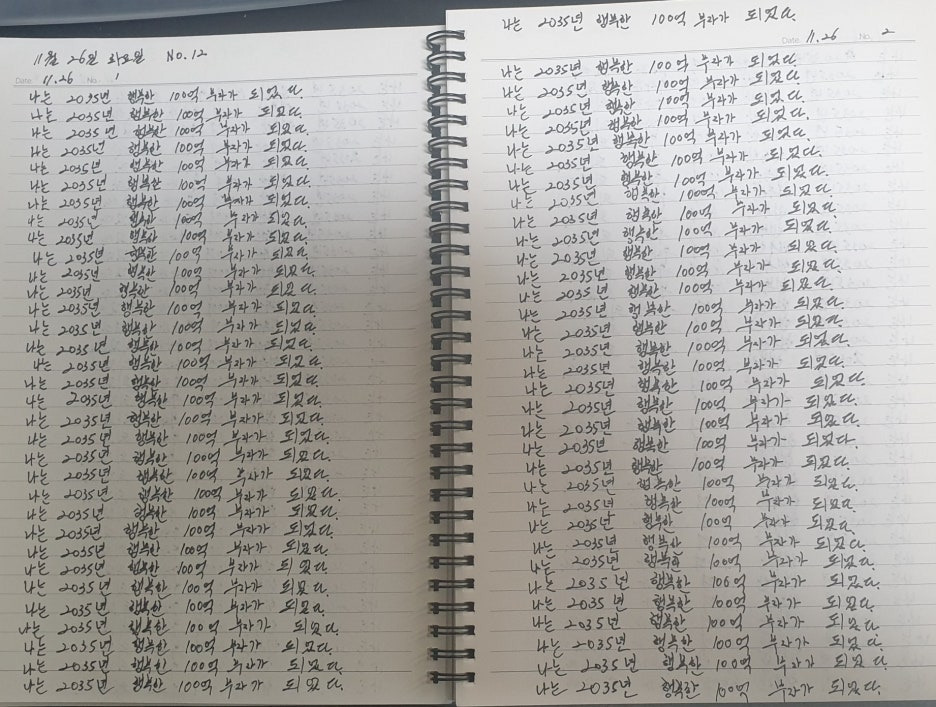 11월 26일 화요일 No.12
Date 11.26 No. 1
나는 2035년 행복한 100억 부자가 되었다.
나는 2035년 행복한 100억 부자가 되었다.
나는 2035년 행복한 100억 부자가 되었다.
나는 2035년 행복한 100억 부자가 되었다.
나는 2035년 행복한 100억 부자가 되었다.
나는 2035년 행복한 100억 부자가 되었다.
나는 2035년 행복한 100억 부자가 되었다.
나는 2035년 행복한 100억 부자가 되었다.
나는 2035년 행복한 100억 부자가 되었다.
나는 2035년 행복한 100억 부자가 되었다.
나는 2035년 행복한 100억 부자가 되었다.
나는 2035년 행복한 100억 부자가 되었다.
나는 2035년 행복한 100억 부자가 되었다.
나는 2035년 행복한 100억 부자가 되었다.
나는 2035년 행복한 100억 부자가 되었다.
나는 2035년 행복한 100억 부자가 되었다.
나는 2035년 행복한 100억 부자가 되었다.
나는 2035년 행복한 100억 부자가 되었다.
나는 2035년 행복한 100억 부자가 되었다.
나는 2035년 행복한 100억 부자가 되었다.
나는 2035년 행복한 100억 부자가 되었다.
나는 2035년 행복한 100억 부자가 되었다.
나는 2035년 행복한 100억 부자가 되었다.
나는 2035년 행복한 100억 부자가 되었다.
나는 2035년 행복한 100억 부자가 되었다.
나는 2035년 행복한 100억 부자가 되었다.
나는 2035년 행복한 100억 부자가 되었다.
나는 2035년 행복한 100억 부자가 되었다.
나는 2035년 행복한 100억 부자가 되었다.
나는 2035년 행복한 100억 부자가 되었다.
나는 2035년 행복한 100억 부자가 되었다.
나는 2035년 행복한 100억 부자가 되었다.
나는 2035년 행복한 100억 부자가 되었다.
나는 2035년 행복한 100억 부자가 되었다.
Date 11.26 No. 2
나는 2035년 행복한 100억 부자가 되었다.
나는 2035년 행복한 100억 부자가 되었다.
나는 2035년 행복한 100억 부자가 되었다.
나는 2035년 행복한 100억 부자가 되었다.
나는 2035년 행복한 100억 부자가 되었다.
나는 2035년 행복한 100억 부자가 되었다.
나는 2035년 행복한 100억 부자가 되었다.
나는 2035년 행복한 100억 부자가 되었다.
나는 2035년 행복한 100억 부자가 되었다.
나는 2035년 행복한 100억 부자가 되었다.
나는 2035년 행복한 100억 부자가 되었다.
나는 2035년 행복한 100억 부자가 되었다.
나는 2035년 행복한 100억 부자가 되었다.
나는 2035년 행복한 100억 부자가 되었다.
나는 2035년 행복한 100억 부자가 되었다.
나는 2035년 행복한 100억 부자가 되었다.
나는 2035년 행복한 100억 부자가 되었다.
나는 2035년 행복한 100억 부자가 되었다.
나는 2035년 행복한 100억 부자가 되었다.
나는 2035년 행복한 100억 부자가 되었다.
나는 2035년 행복한 100억 부자가 되었다.
나는 2035년 행복한 100억 부자가 되었다.
나는 2035년 행복한 100억 부자가 되었다.
나는 2035년 행복한 100억 부자가 되었다.
나는 2035년 행복한 100억 부자가 되었다.
나는 2035년 행복한 100억 부자가 되었다.
나는 2035년 행복한 100억 부자가 되었다.
나는 2035년 행복한 100억 부자가 되었다.
나는 2035년 행복한 100억 부자가 되었다.
나는 2035년 행복한 100억 부자가 되었다.
나는 2035년 행복한 100억 부자가 되었다.
나는 2035년 행복한 100억 부자가 되었다.
나는 2035년 행복한 100억 부자가 되었다.